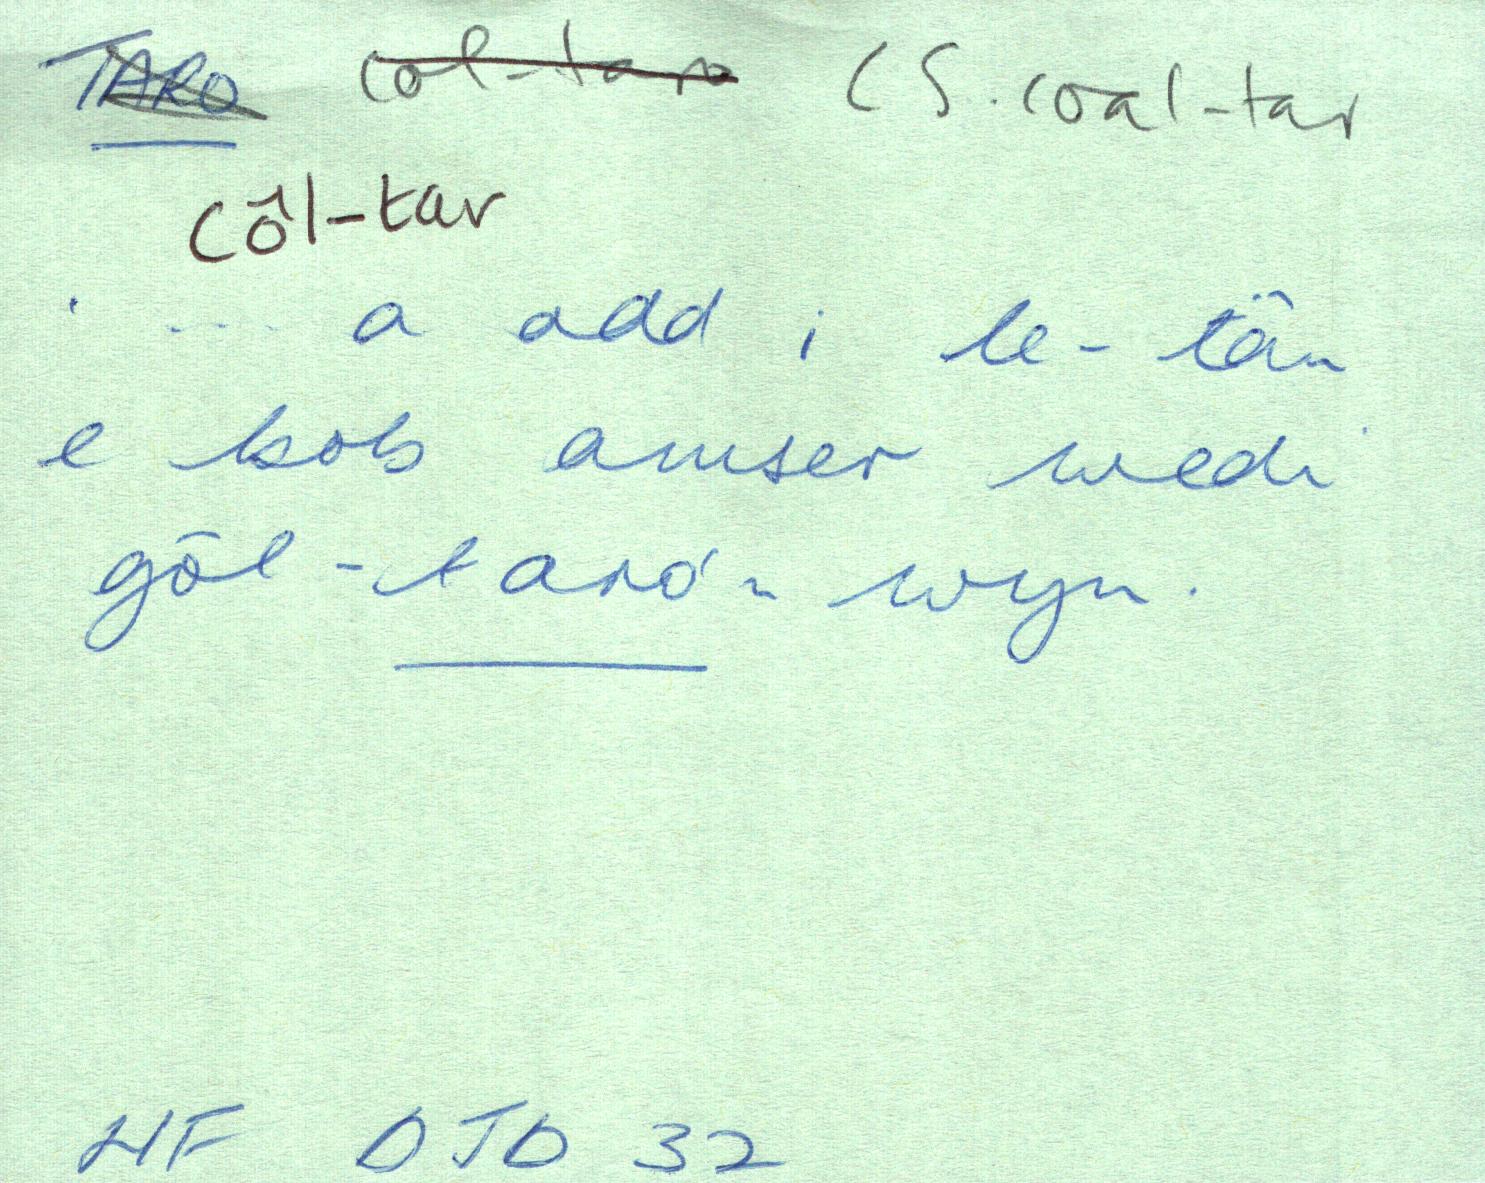 TARO col-taro CS. coal-tar
côl-tar
' ... a odd i le-tân
e bob amser wedi
gôl-taro'n wyn.
HF DJD 32